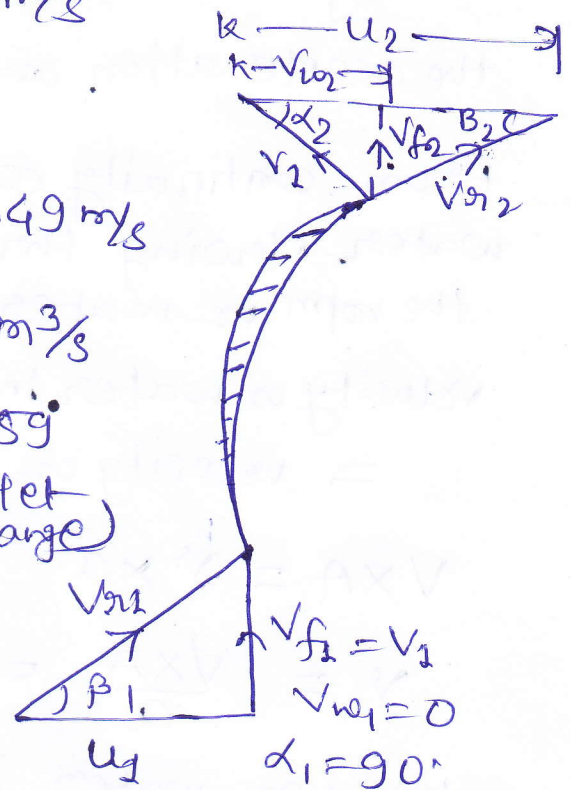 m/s
k — U2 →
k-Vw2→
α2
Vf2
β2
V2
Vr2
.49 m/s
m³/s
sg
let
ange)
Vr1
Vf1 = V1
β1
Vw1 = 0
U1
α1 = 90°